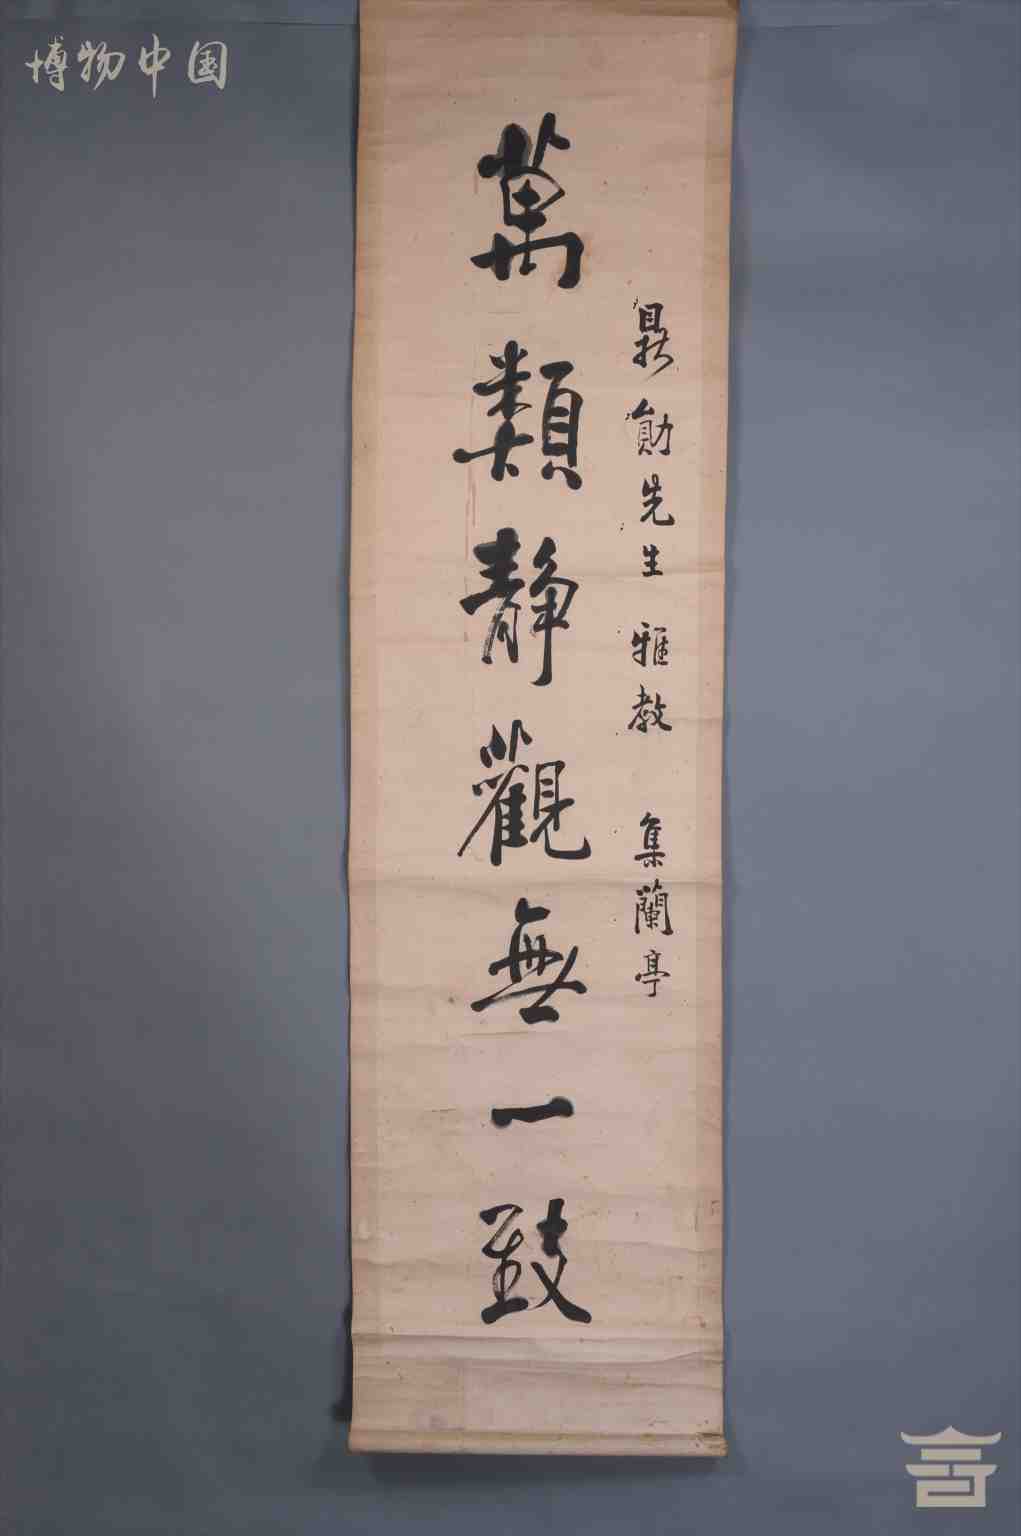 博物中国
鼎勛先生雅教 集蘭亭
萬類靜觀無一致